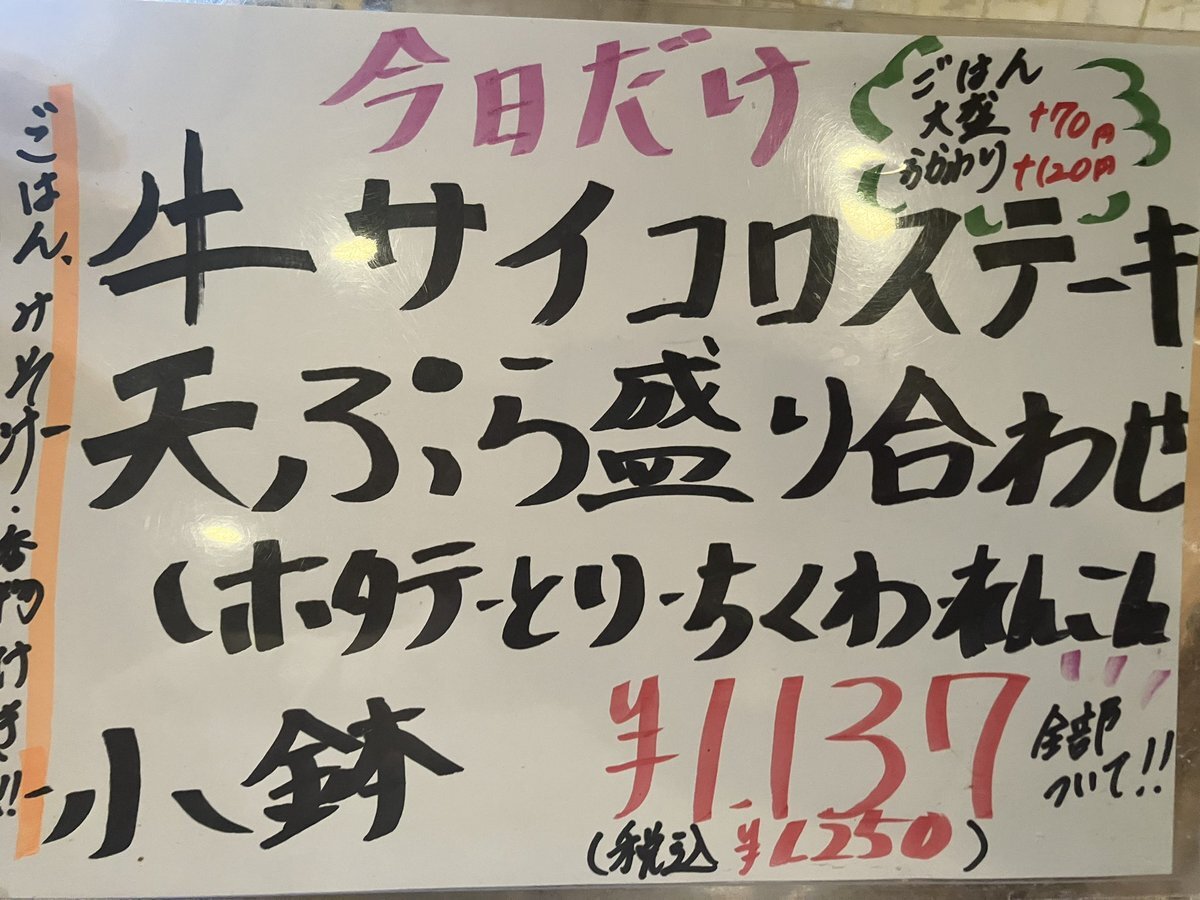 今日だけ
ごはん
大盛 +70円
おかわり +120円
牛サイコロステーキ
天ぷら盛り合わせ
(ホタテ-とり-ちくわ-れんこん
小鉢
¥1.137
全部
ついて!!
(税込 ¥1250)
ごはん、みそ汁・香物付き!!